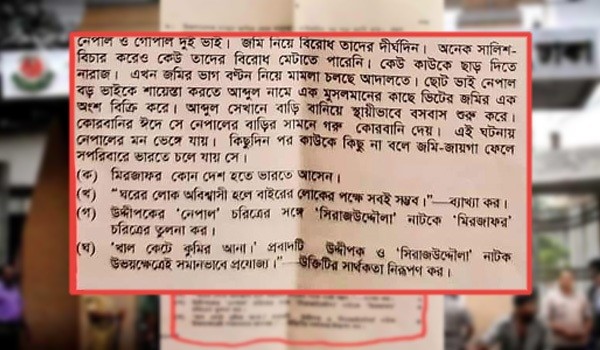 নেপাল ও গোপাল দুই ভাই। জমি নিয়ে বিরোধ তাদের দীর্ঘদিন। অনেক সালিশ-
বিচার করেও কেউ তাদের বিরোধ মেটাতে পারেনি। কেউ কাউকে ছাড় দিতে
নারাজ। এখন জমির ভাগ বণ্টন নিয়ে মামলা চলছে আদালতে। ছোট ভাই নেপাল
বড় ভাইকে শায়েস্তা করতে আব্দুল নামে এক মুসলমানের কাছে ভিটের জমির এক
অংশ বিক্রি করে। আব্দুল সেখানে বাড়ি বানিয়ে স্থায়ীভাবে বসবাস শুরু করে।
কোরবানির ঈদে সে নেপালের বাড়ির সামনে গরু কোরবানি দেয়। এই ঘটনায়
নেপালের মন ভেঙ্গে যায়। কিছুদিন পর কাউকে কিছু না বলে জমি-জায়গা ফেলে
সপরিবারে ভারতে চলে যায় সে।
(ক) মিরজাফর কোন দেশ হতে ভারতে আসেন।
(খ) "ঘরের লোক অবিশ্বাসী হলে বাইরের লোকের পক্ষে সবই সম্ভব।"—ব্যাখ্যা কর।
(গ) উদ্দীপকের 'নেপাল' চরিত্রের সঙ্গে 'সিরাজউদ্দৌলা' নাটকে 'মিরজাফর'
চরিত্রের তুলনা কর।
(ঘ) 'খাল কেটে কুমির আনা।' প্রবাদটি উদ্দীপক ও 'সিরাজউদ্দৌলা' নাটক
উভয়ক্ষেত্রেই সমানভাবে প্রযোজ্য।"—উক্তিটির সার্থকতা নিরূপণ কর।